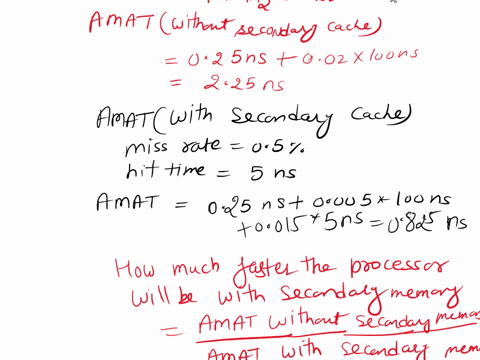 AMAT (without secondary cache)
= 0.25ns + 0.02 × 100ns
= 2.25 ns
AMAT (with secondary cache)
miss rate = 0.5%
hit time = 5 ns
AMAT = 0.25 ns + 0.005 * 100 ns
+ 0.015 * 5ns = 0.825 ns
How much faster the processor
will be with secondary memory
= AMAT without secondary memory
AMAT with secondary mem